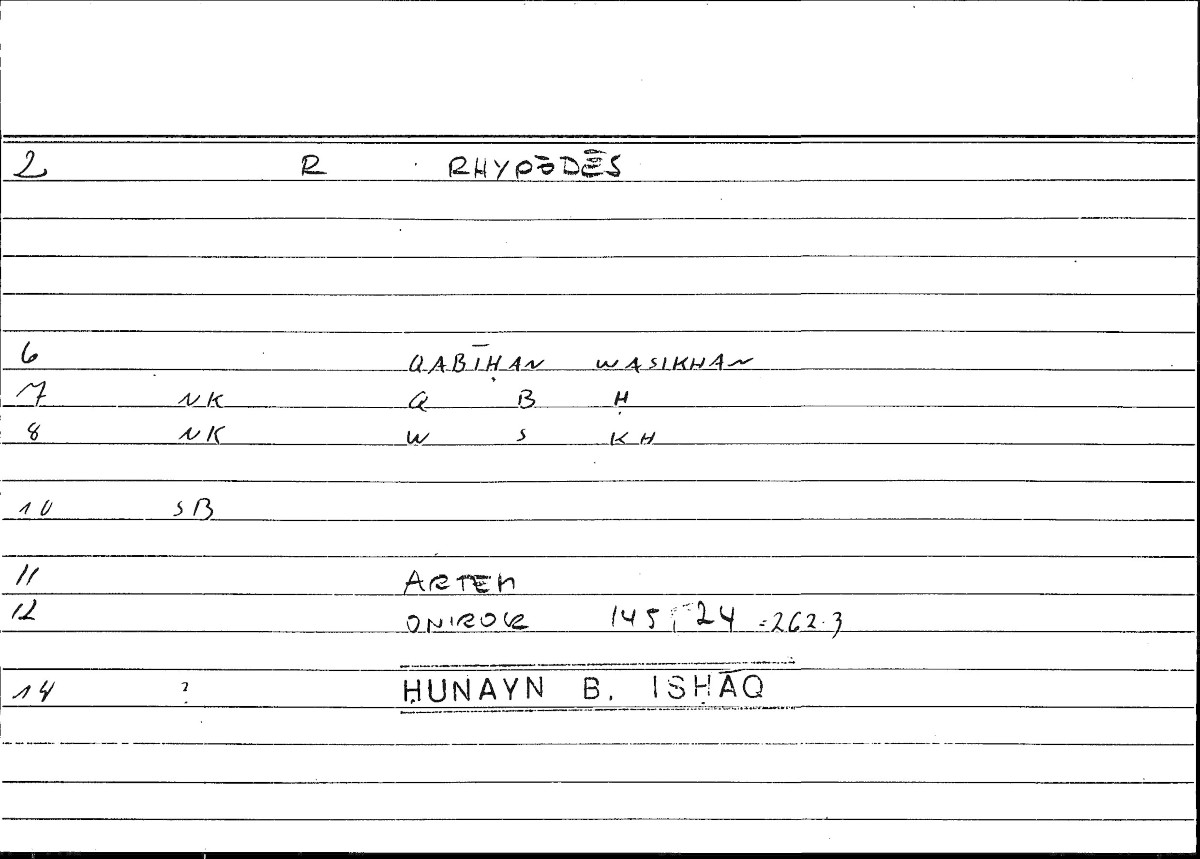 2 R RHYPŌDĒS
6 QABĪḤAN WASIKHAN
7 NK Q B Ḥ
8 NK W S KH
10 SB
11 ARTEM
12 ONIROK 145, 24 =262.3
14 ? ḤUNAYN B. ISḤĀQ